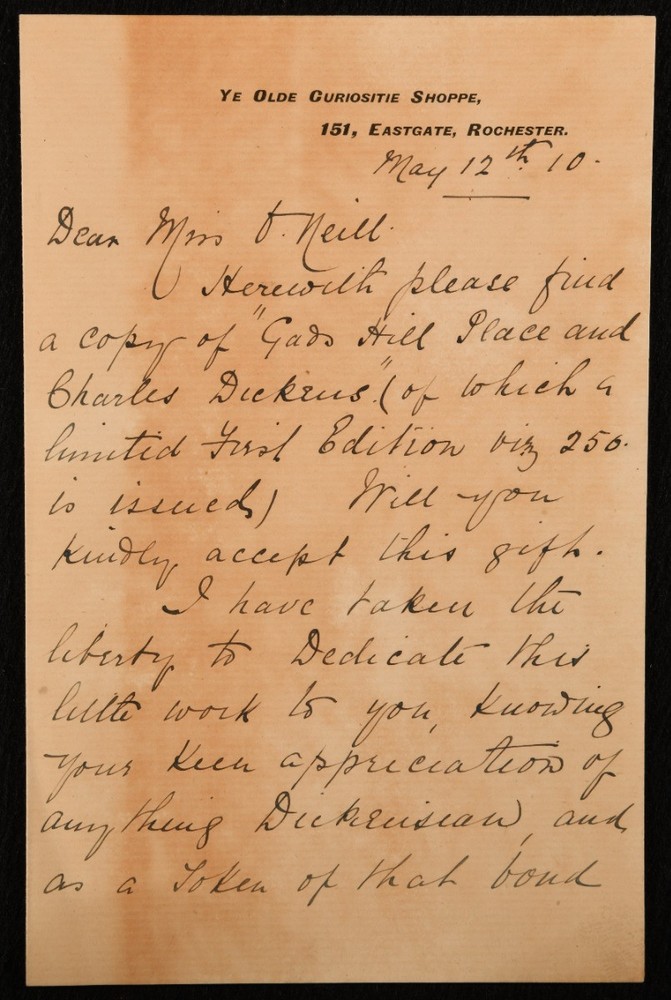 Ye Olde Curiositie Shoppe,
151, Eastgate, Rochester.
May 12th 10.
Dear Miss O'Neill.
Herewith please find
a copy of "Gads Hill Place and
Charles Dickens" (of which a
limited First Edition viz 250.
is issued) Will you
kindly accept this gift.
I have taken the
liberty to Dedicate this
little work to you, knowing
your keen appreciation of
anything Dickensian, and
as a token of that bond